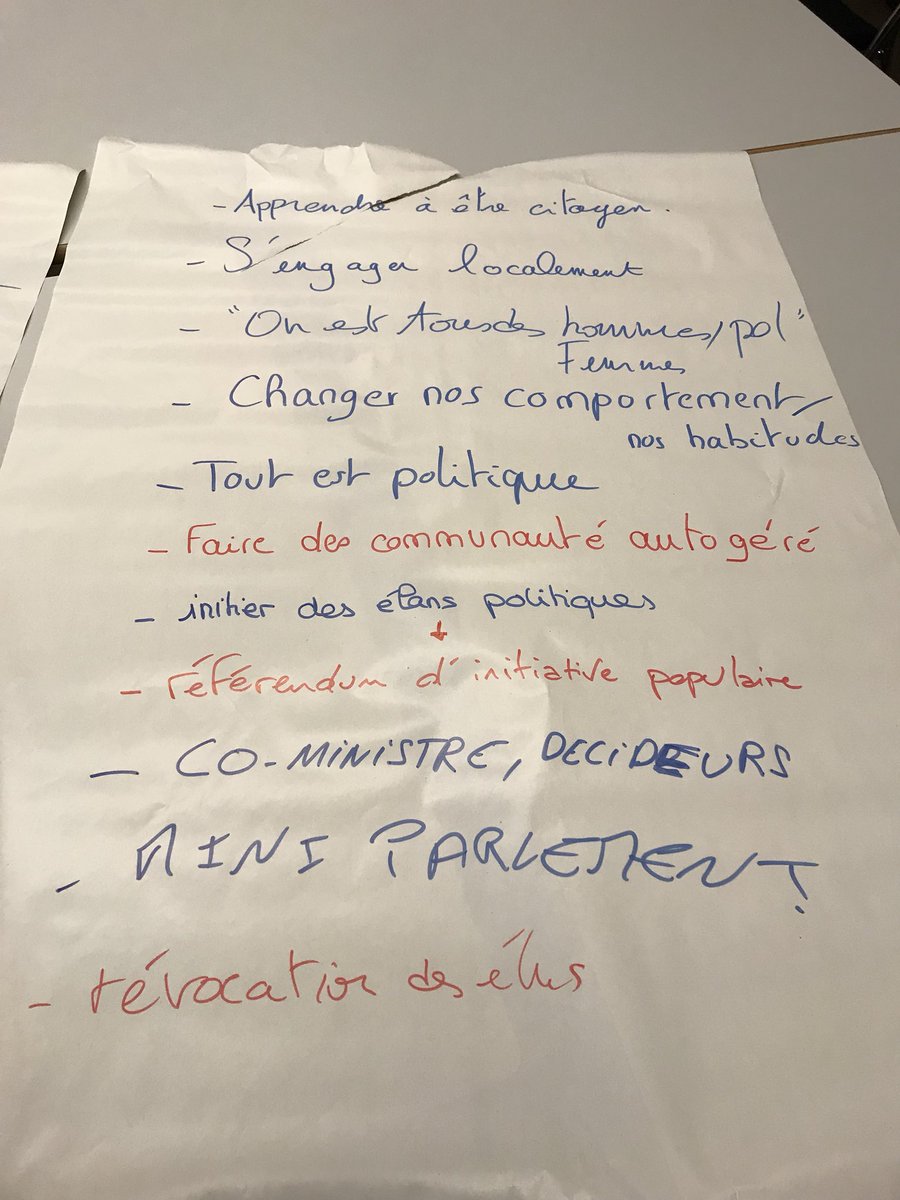 - Apprendre à être citoyen.
- S'engager localement
- "On est tous des hommes/pol"
Femmes
- Changer nos comportement/
nos habitudes
- Tout est politique
- Faire des communauté autogéré
- initier des élans politiques
- référendum d'initiative populaire
- CO-MINISTRE, DECiDEURS
- MINI PARLEMENT!
- révocation des élus